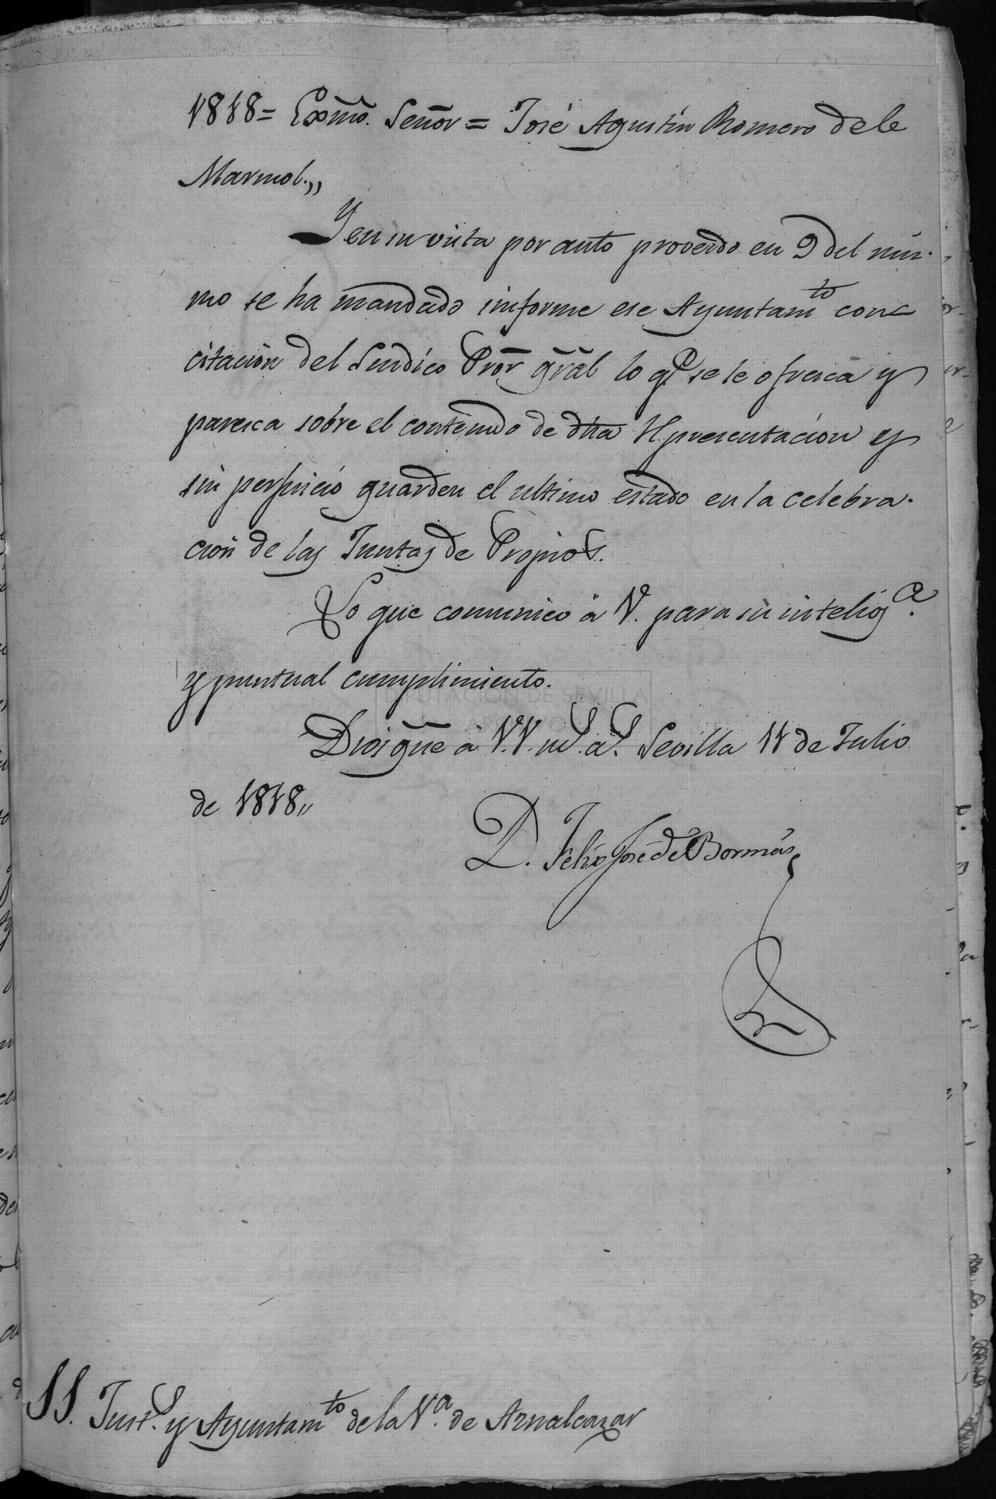 1818 = Exmo. Señor = José Agustin Romero de le
Marmol.,,
Y en su vista por auto proveido en 9 del mis-
mo se ha mandado informe ese Ayuntamto con
citación del Sindico Pror gral lo qe se le ofresca y
paresca sobre el contenido de dha Rpresentación y
sin perjuicio guarden el ultimo estado en la celebra-
ción de las Juntas de Propios.
Lo que comunico á V. para su inteliga.
y puntual cumplimiento.
Dios gue á V.V. ms. as. Sevilla 11 de Julio
de 1818,,
D. Felix José de Bormas
SS. Justa. y Ayuntamto de la Va. de Aznalcazar
DIPUTACIÓN DE SEVILLA